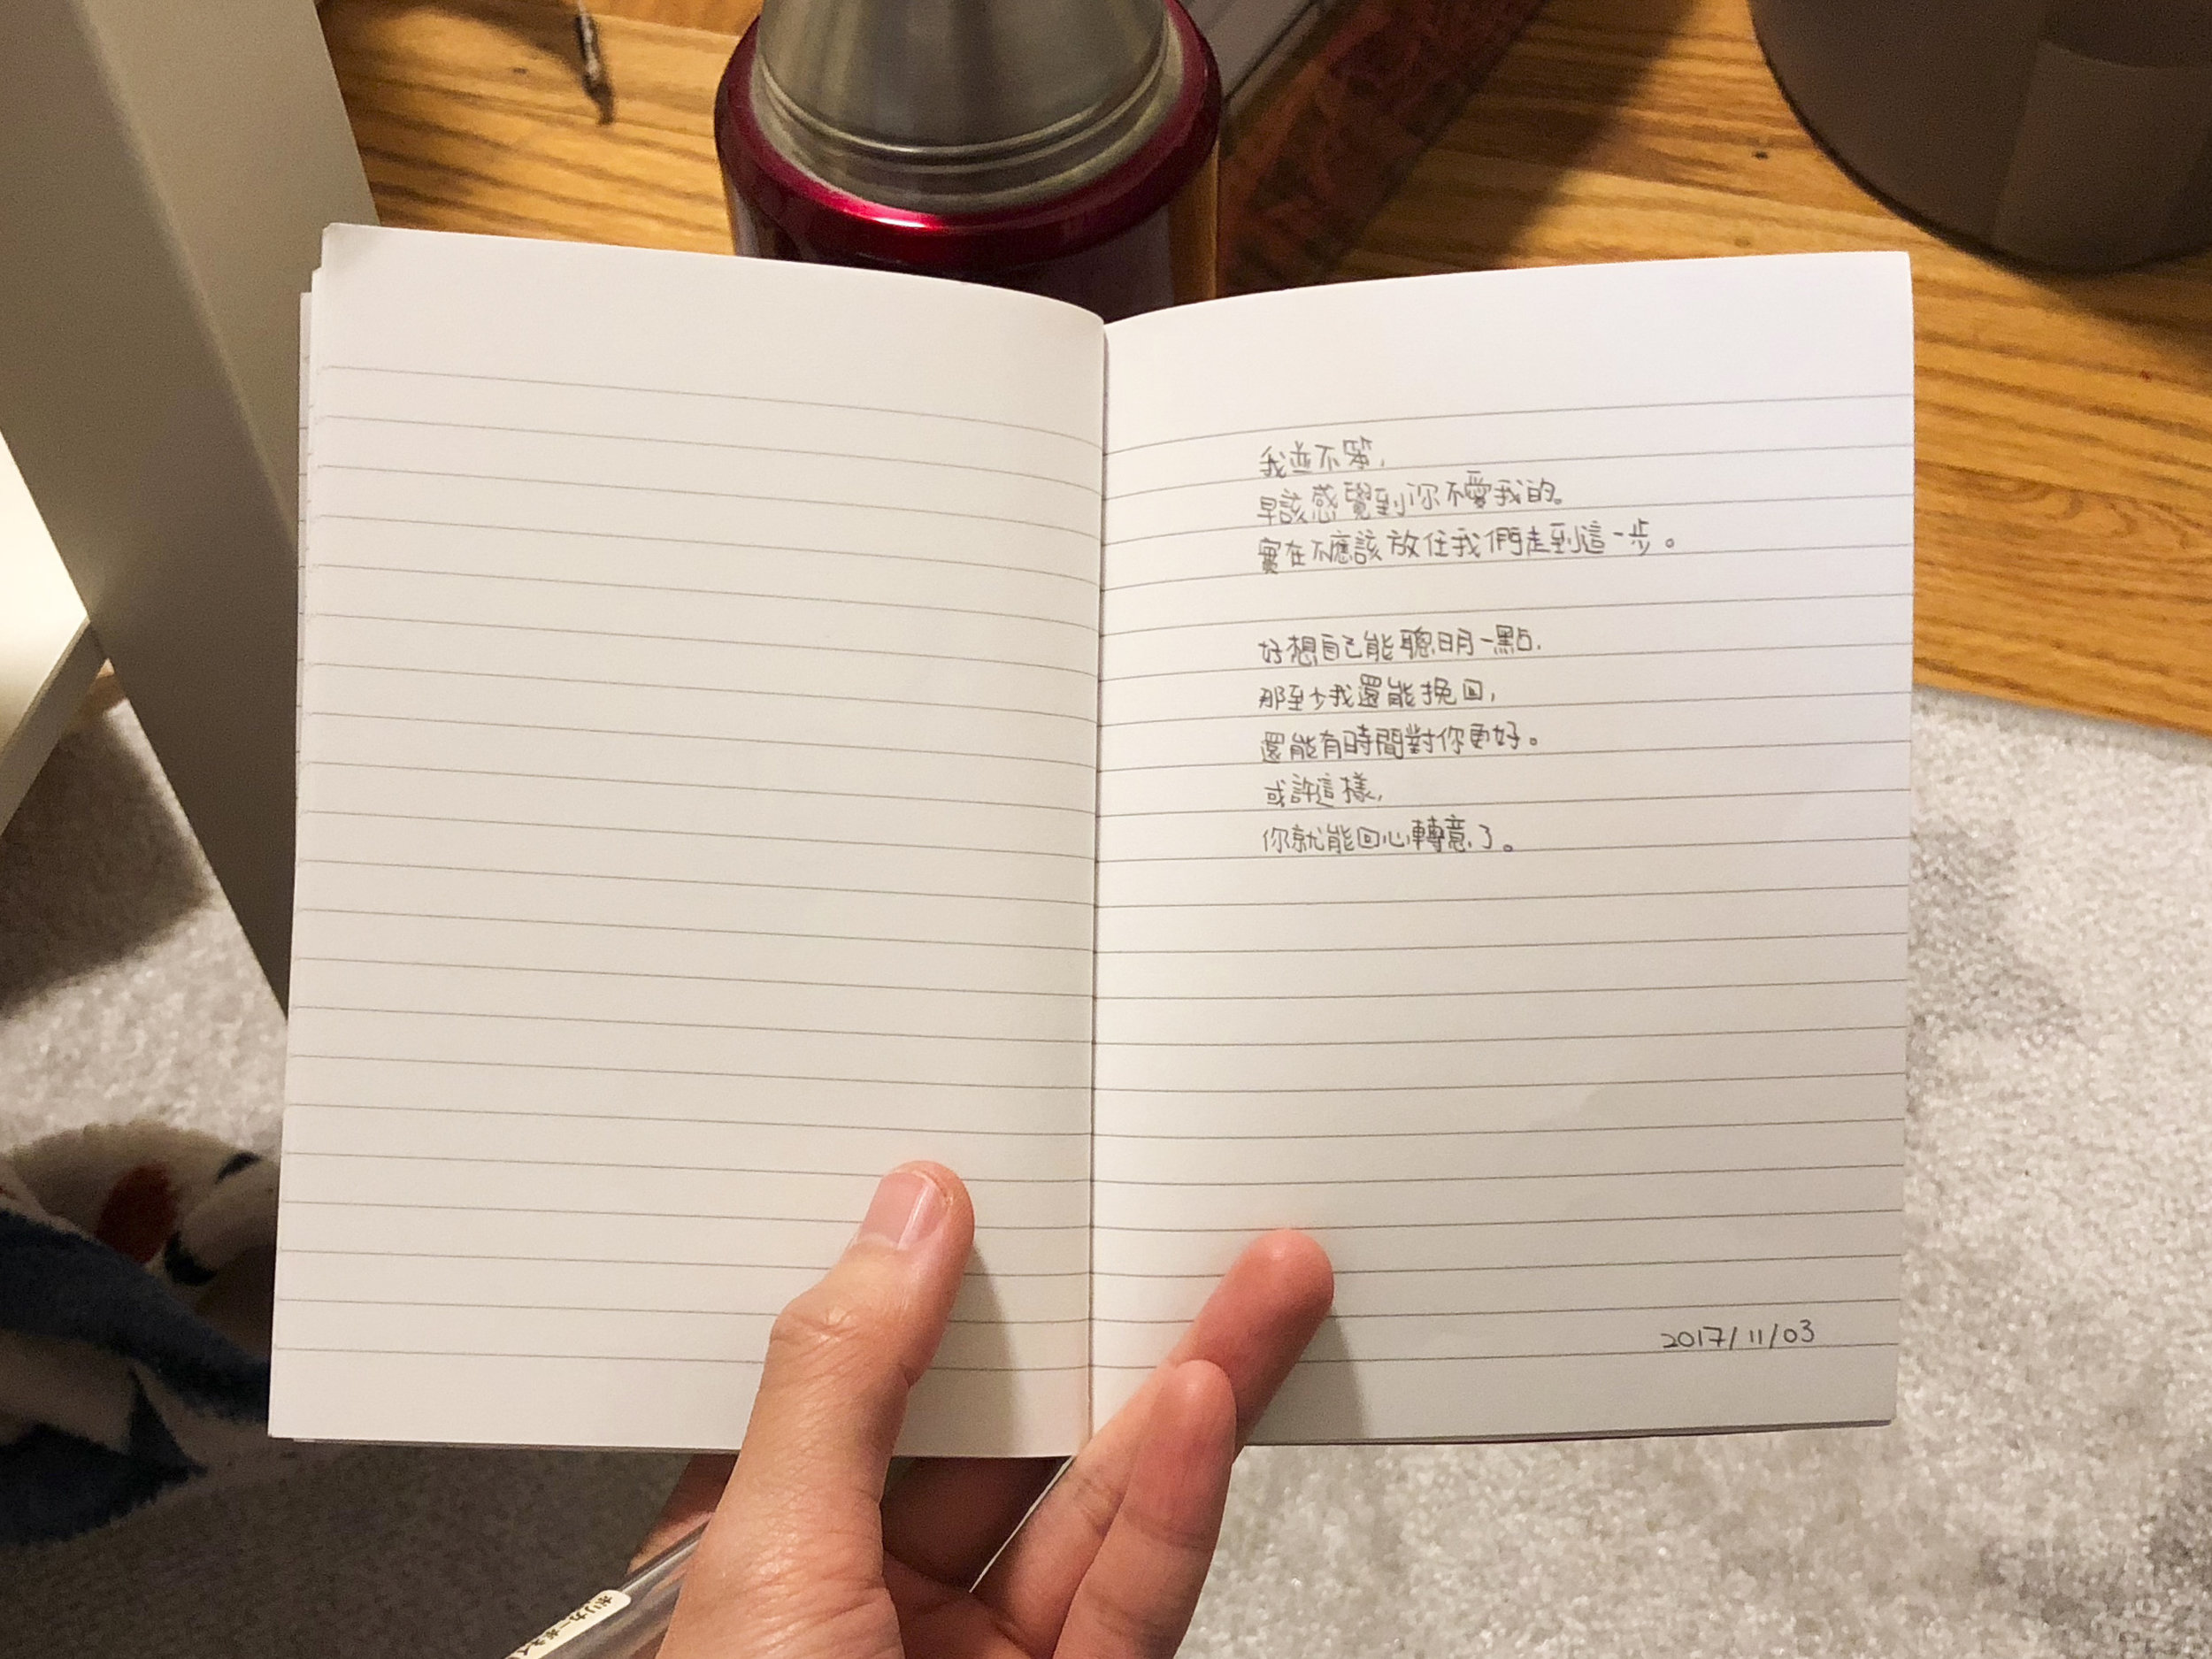 我並不笨，
早該感覺到你不愛我的。
實在不應該放任我們走到這一步。
好想自己能聰明一點，
那至少我還能挽回，
還能有時間對你更好。
或許這樣，
你就能回心轉意了。
2017/11/03
ポリカーボネイ